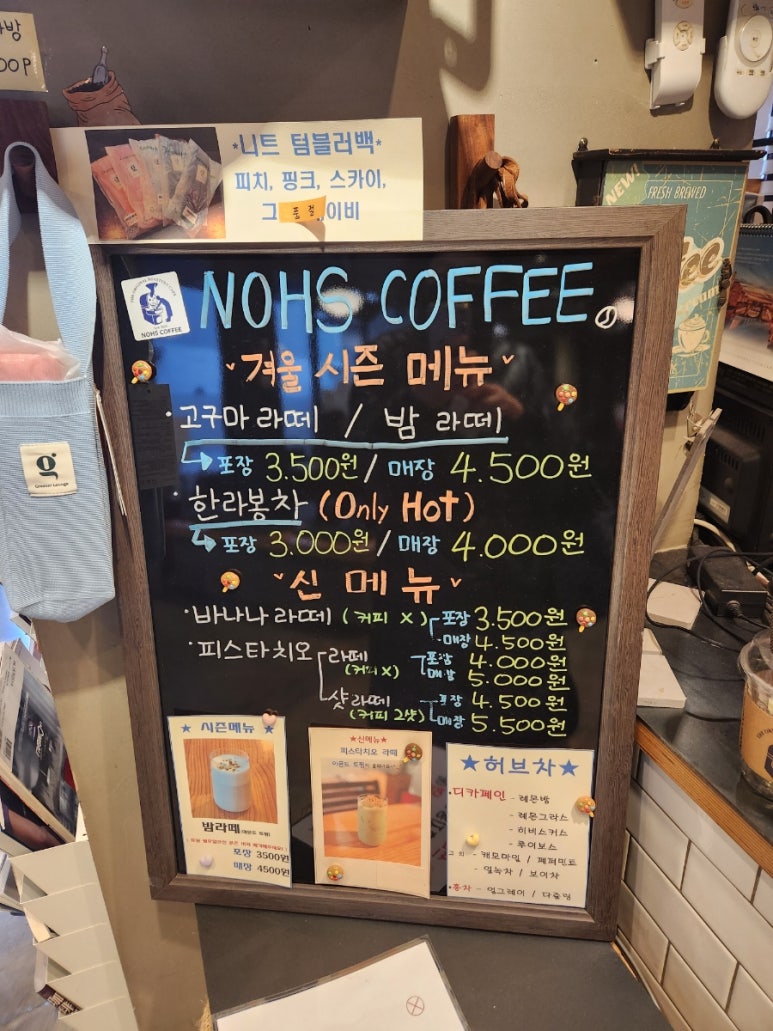 *니트 텀블러백*
피치, 핑크, 스카이,
그 품절 이비
NEW!
FRESH BREWED
NOHS COFFEE
NOHS COFFEE
겨울 시즌 메뉴
· 고구마 라떼 / 밤 라떼
포장 3.500원 / 매장 4.500원
· 한라봉차 (Only Hot)
포장 3.000원 / 매장 4.000원
신 메뉴
· 바나나 라떼 (커피 X) 포장 3.500원
· 매장 4.500원
· 피스타치오 라떼 (커피X) 포장 4.000원
매장 5.000원
샷 라떼 (커피 2샷) 포장 4.500원
매장 5.500원
★ 시즌메뉴 ★
밤라떼
포장 3500원
매장 4500원
★신메뉴★
피스타치오 라떼
★허브차★
· 디카페인 - 레몬밤
- 레몬그라스
- 히비스커스
- 루이보스
그 외 - 캐모마일 / 페퍼민트
- 잎녹차 / 보이차
· 홍차 - 얼그레이 / 다즐링
g